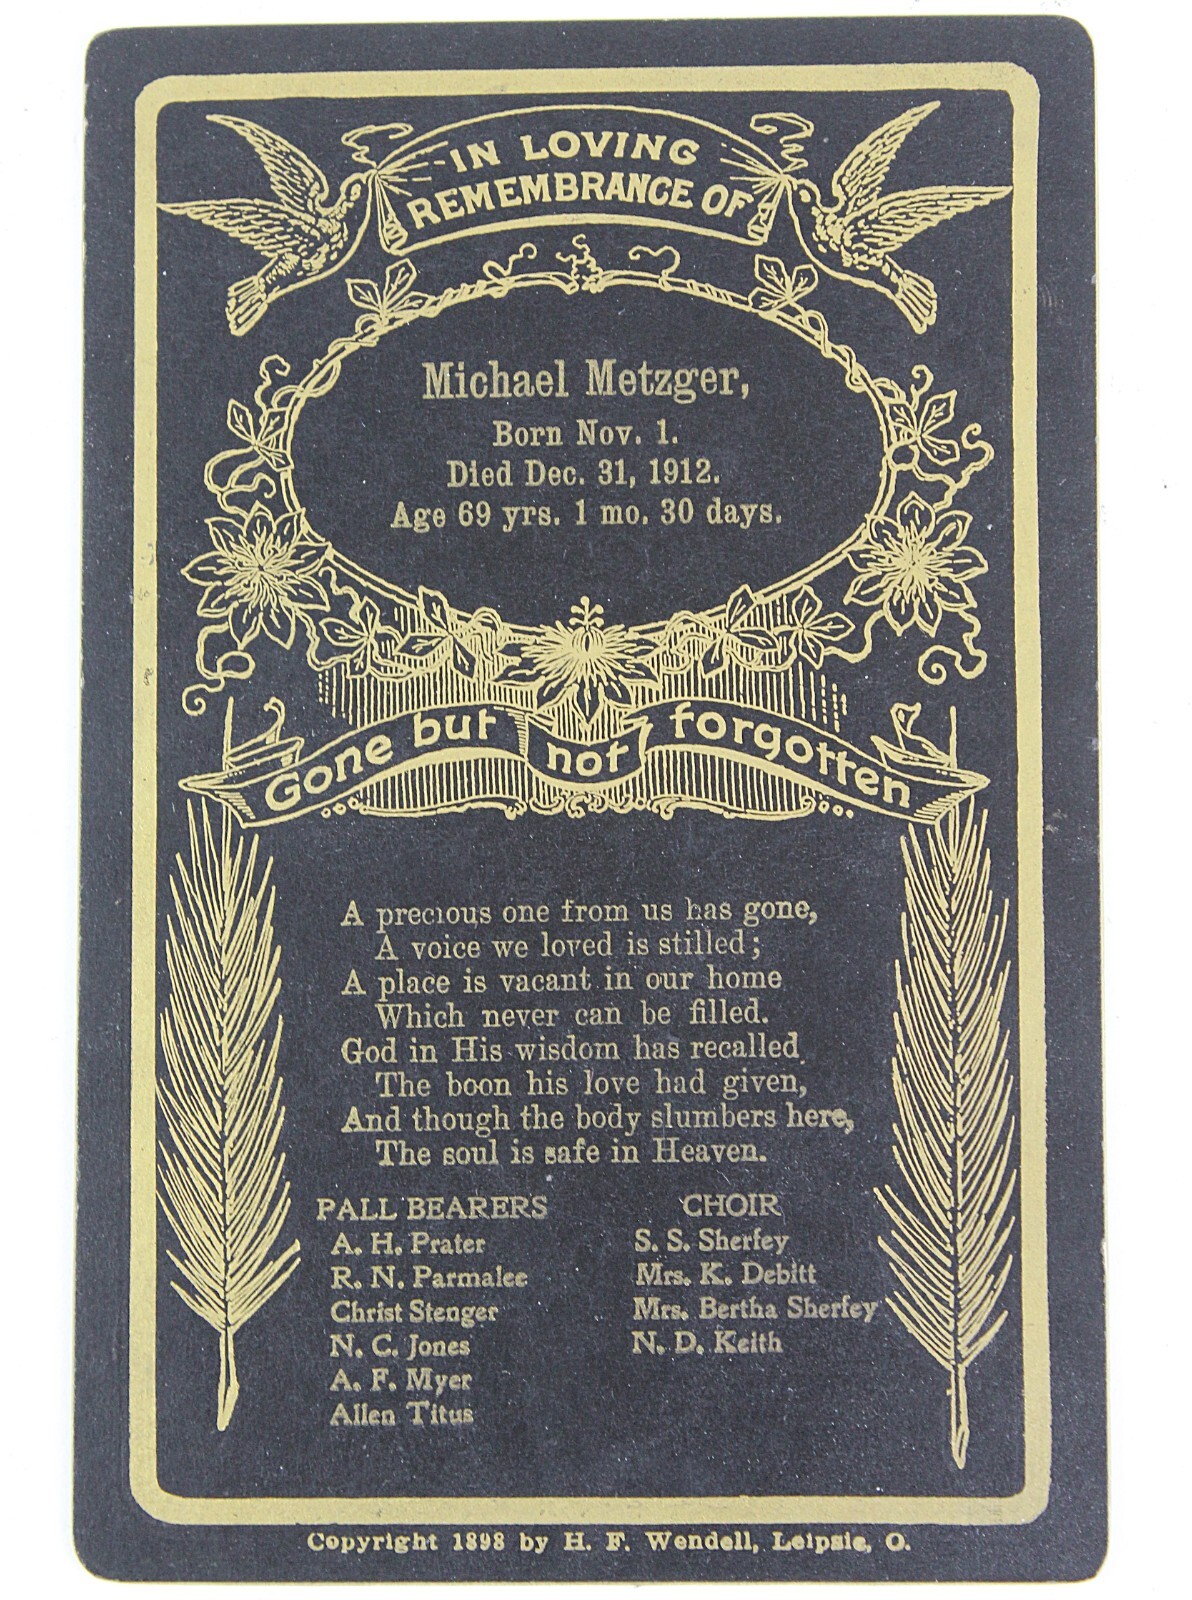 IN LOVING
REMEMBRANCE OF
Michael Metzger,
Born Nov. 1.
Died Dec. 31, 1912.
Age 69 yrs. 1 mo. 30 days.
Gone but not forgotten
A precious one from us has gone,
A voice we loved is stilled;
A place is vacant in our home
Which never can be filled.
God in His wisdom has recalled
The boon his love had given,
And though the body slumbers here,
The soul is safe in Heaven.
PALL BEARERS
A. H. Prater
R. N. Parmalee
Christ Stenger
N. C. Jones
A. F. Myer
Allen Titus
CHOIR
S. S. Sherfey
Mrs. K. Debitt
Mrs. Bertha Sherfey
N. D. Keith
Copyright 1898 by H. F. Wendell, Leipsic, O.